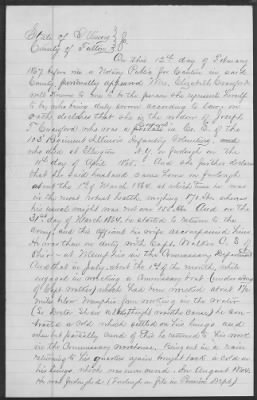 State of Illinois }
County of Fulton } SS
On this 12th day of February
1887 before me a Notary Public for Canton in said
County personally appeared Mrs. Elizabeth Crawford
well known to me to be the person she represents herself
to be, who being duly sworn according to law, on
oath declares that she is the widow of Joseph
T Crawford who was a private in Co. E. of the
103 Regiment Illinois Infantry Volunteers, and
who died at
11th day of April 1865. And she further declares
that she said husband came home on furlough
about the 1st of March 1864. at which time he was
in the most robust health, weighing 175 lbs whereas
his usual weight was not over 150 lbs. And on the
31st day of March 1864, he started to return to the
army, and this affiant his wife accompanied him
He was then on duty with Capt. Walker C. S. of
at Memphis in the Commissary Department
And that in July, about the of the month, while
engaged in unloading a Commissary boat
of Capt Walker) which had been wrecked about
miles below Memphis from working in the water
he con-
tracted a cold which settled on his lungs and
when but partially cured of this he returned to his work
in the Commissary warehouse, being out in a rain
returning to his quarters again caught took a cold on
his lungs, which remained In August 1864.
He was furloughed (Furlough on file in Pension Dept.)